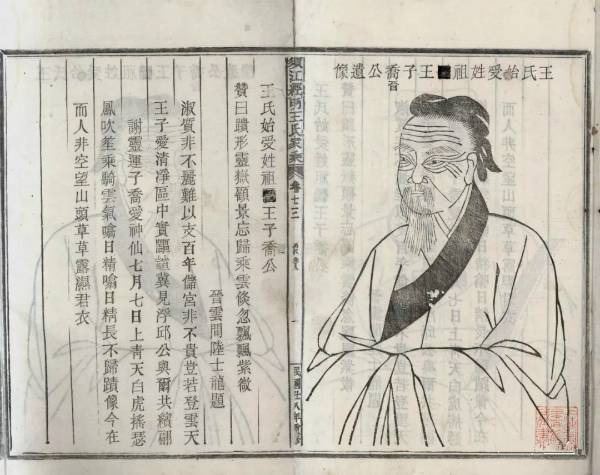 王氏始受姓祖王子喬公遺像
晉
王氏家乘 卷七三
王氏始受姓祖王子喬公
贊曰蹟形靈嶽顧景忘歸乘雲倏忽飄飄紫微
晉雲間陸士龍題
淑質非不麗難以支百年儲宮非不貴豈若登雲天
王子愛清凈區中實諠冀見浮邱公與爾共繽翩
謝靈運子喬愛神仙七月七日上青天白虎搖瑟
鳳吹笙乘騎雲氣噏日精噏日精長不歸蹟像今在
而人非空望山頭草草露濕君衣